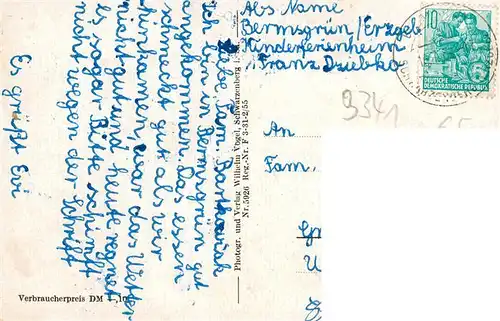 Liebe Fam. Bartkowiak
ich bin in Bermsgrün gut
angekommen. Das essen
schmeckt gut als wir
hinkamen, war das Wetter
nicht gut und heute regnet
es sogar. Bitte schimpft
nicht wegen der Schrift
Es grüßt Evi
Verbraucherpreis DM -,10
Photogr. und Verlag Wilhelm Vogel, Schwarzenberg
Nr. 5926 Reg.-Nr. F 3-31-2/55
Abs Name
Bermsgrün/Erzgeb
Kinderferienheim
Franz Dziebko
10
DEUTSCHE
DEMOKRATISCHE REPUBLIK
9341
An
Fam.